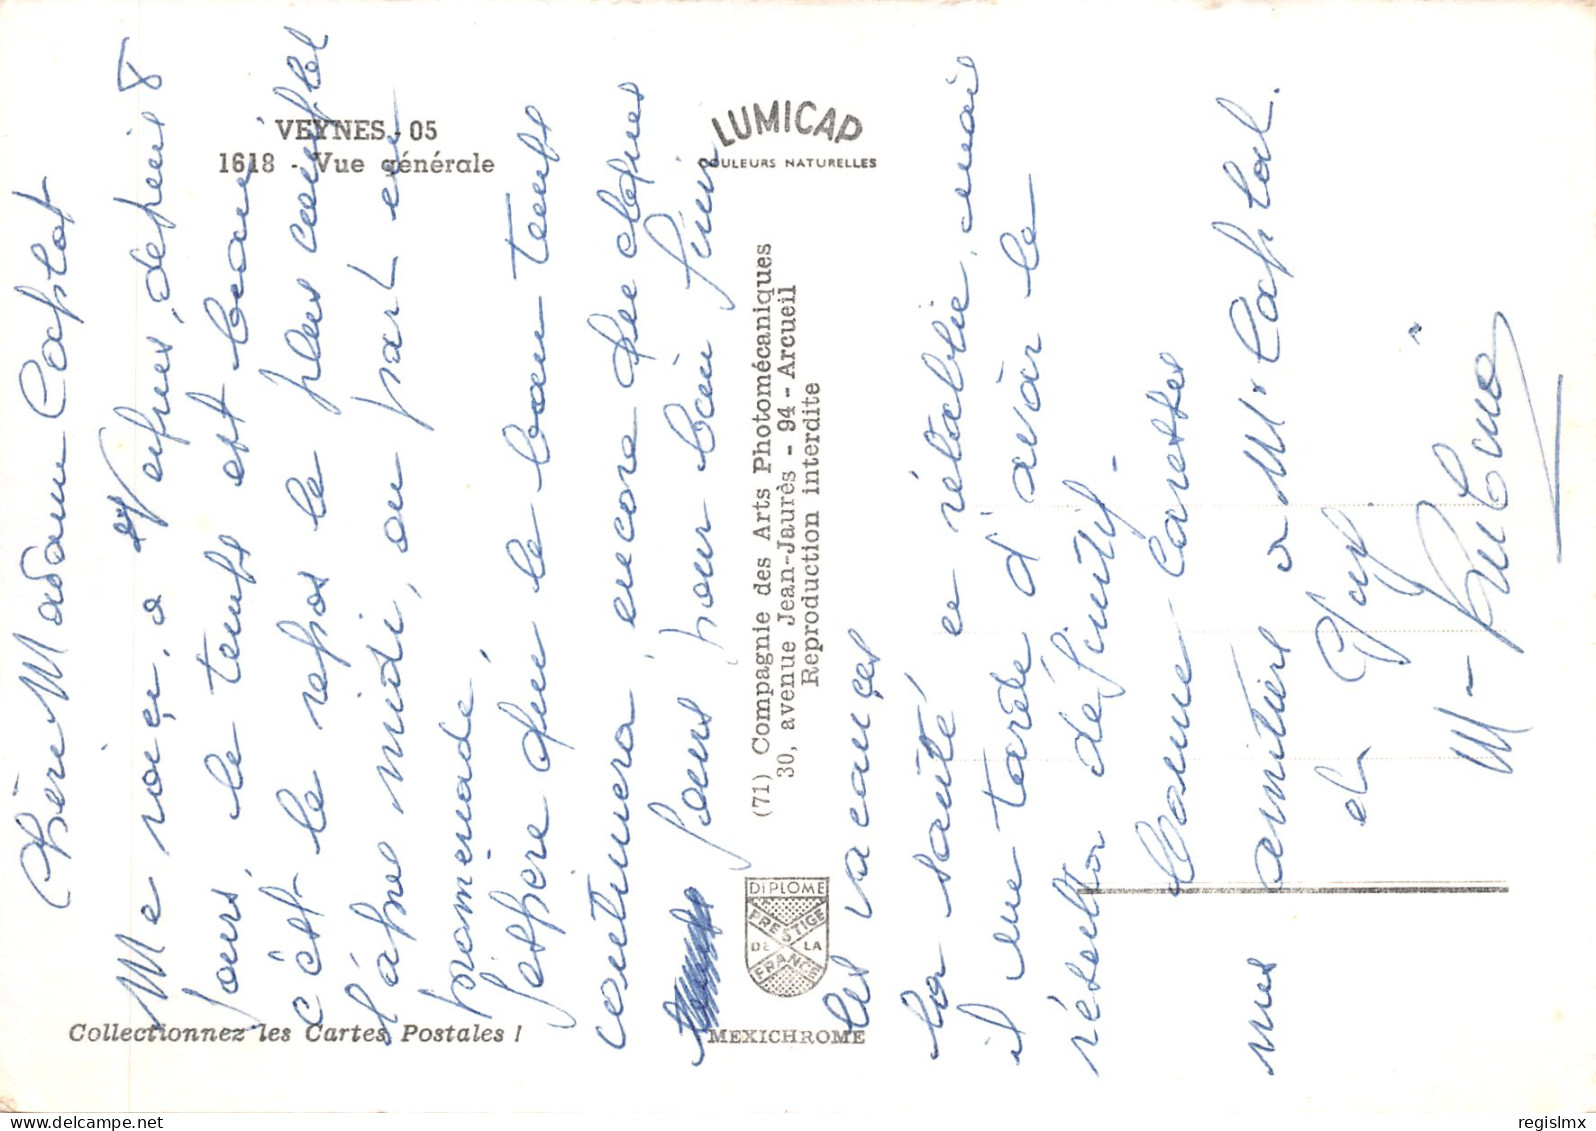 VEYNES - 05
1618 - Vue générale
LUMICAP
COULEURS NATURELLES
Chère Madame Caplat
Me voici, à Veynes, depuis 8
jours, le temps est beau
c'est le repos le plus complet
l'après midi, on part en
promenade
J'espère que le beau temps
continuera encore quelques
jours pour bien finir
les vacances
La santé ce rétablie, mais
il me tarde d'avoir le
résulta définitif -
Bonne Caresses
mes amitiers a Mr Caplat
et
M -
(71) Compagnie des Arts Photomécaniques
30, avenue Jean-Jaurès - 94 - Arcueil
Reproduction interdite
DIPLOME
PRESTIGE
DE LA
FRANCE
Collectionnez les Cartes Postales !
MEXICHROME
regislmx